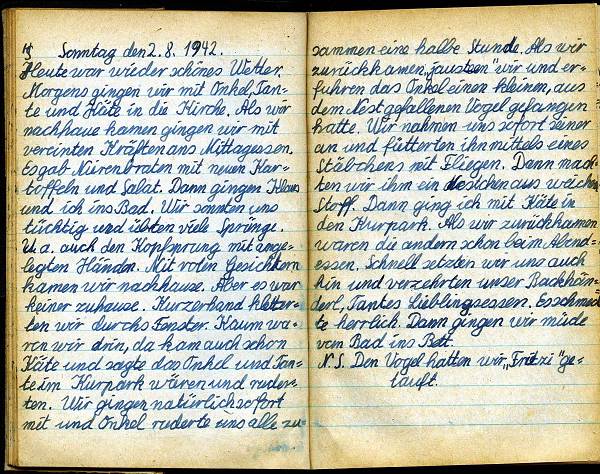 Sonntag den 2. 8. 1942.
Heute war wieder schönes Wetter.
Morgens gingen wir mit Onkel, Tan-
te und Käte in die Kirche. Als wir
nachhause kamen gingen wir mit
vereinten Kräften ans Mittagessen.
Es gab Nierenbraten mit neuen Kar-
toffeln und Salat. Dann gingen Klaus
und ich ins Bad. Wir sonnten uns
tüchtig und übten viele Sprünge.
U. a. auch den Kopfsprung mit ange-
legten Händen. Mit roten Gesichtern
kamen wir nachhause. Aber es war
keiner zuhause. Kurzerhand kletter-
ten wir durchs Fenster. Kaum wa-
ren wir drin, da kam auch schon
Käte und sagte das Onkel und Tan-
te im Kurpark wären und ruder-
ten. Wir gingen natürlich sofort
mit und Onkel ruderte uns alle zu-
sammen eine halbe Stunde. Als wir
zurückkamen, "jausten" wir und er-
fuhren das Onkel einen kleinen, aus
dem Nest gefallenen Vogel gefangen
hatte. Wir nahmen uns sofort seiner
an und fütterten ihn mittels eines
Stäbchens mit Fliegen. Dann mach-
ten wir ihm ein Nestchen aus weichem
Stoff. Dann ging ich mit Käte in
den Kurpark. Als wir zurückkamen
waren die andern schon beim Abend-
essen. Schnell setzten wir uns auch
hin und verzehrten unser Backhän-
derl, Tantes Lieblingsessen. Es schmeck-
te herrlich. Dann gingen wir müde
vom Bad ins Bett.
N. S. Den Vogel hatten wir „Fritzi" ge-
tauft.